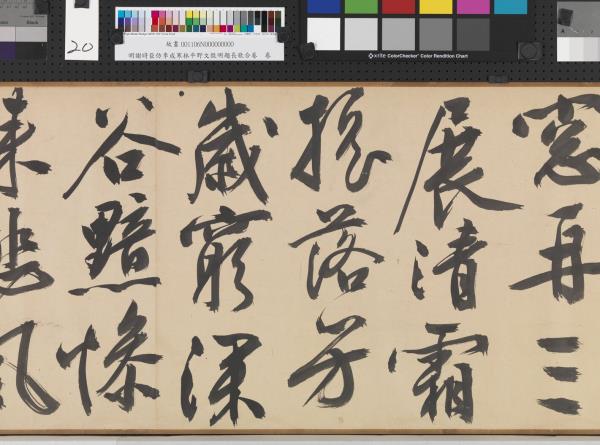 Black
20
故畫 001106N000000000
明謝時臣仿李成寒林平野文徵明題長歌合卷 卷
x-rite ColorChecker Color Rendition Chart
窓再三
展清霜
搖落芳
歲窮深
谷黯慘
來悲風